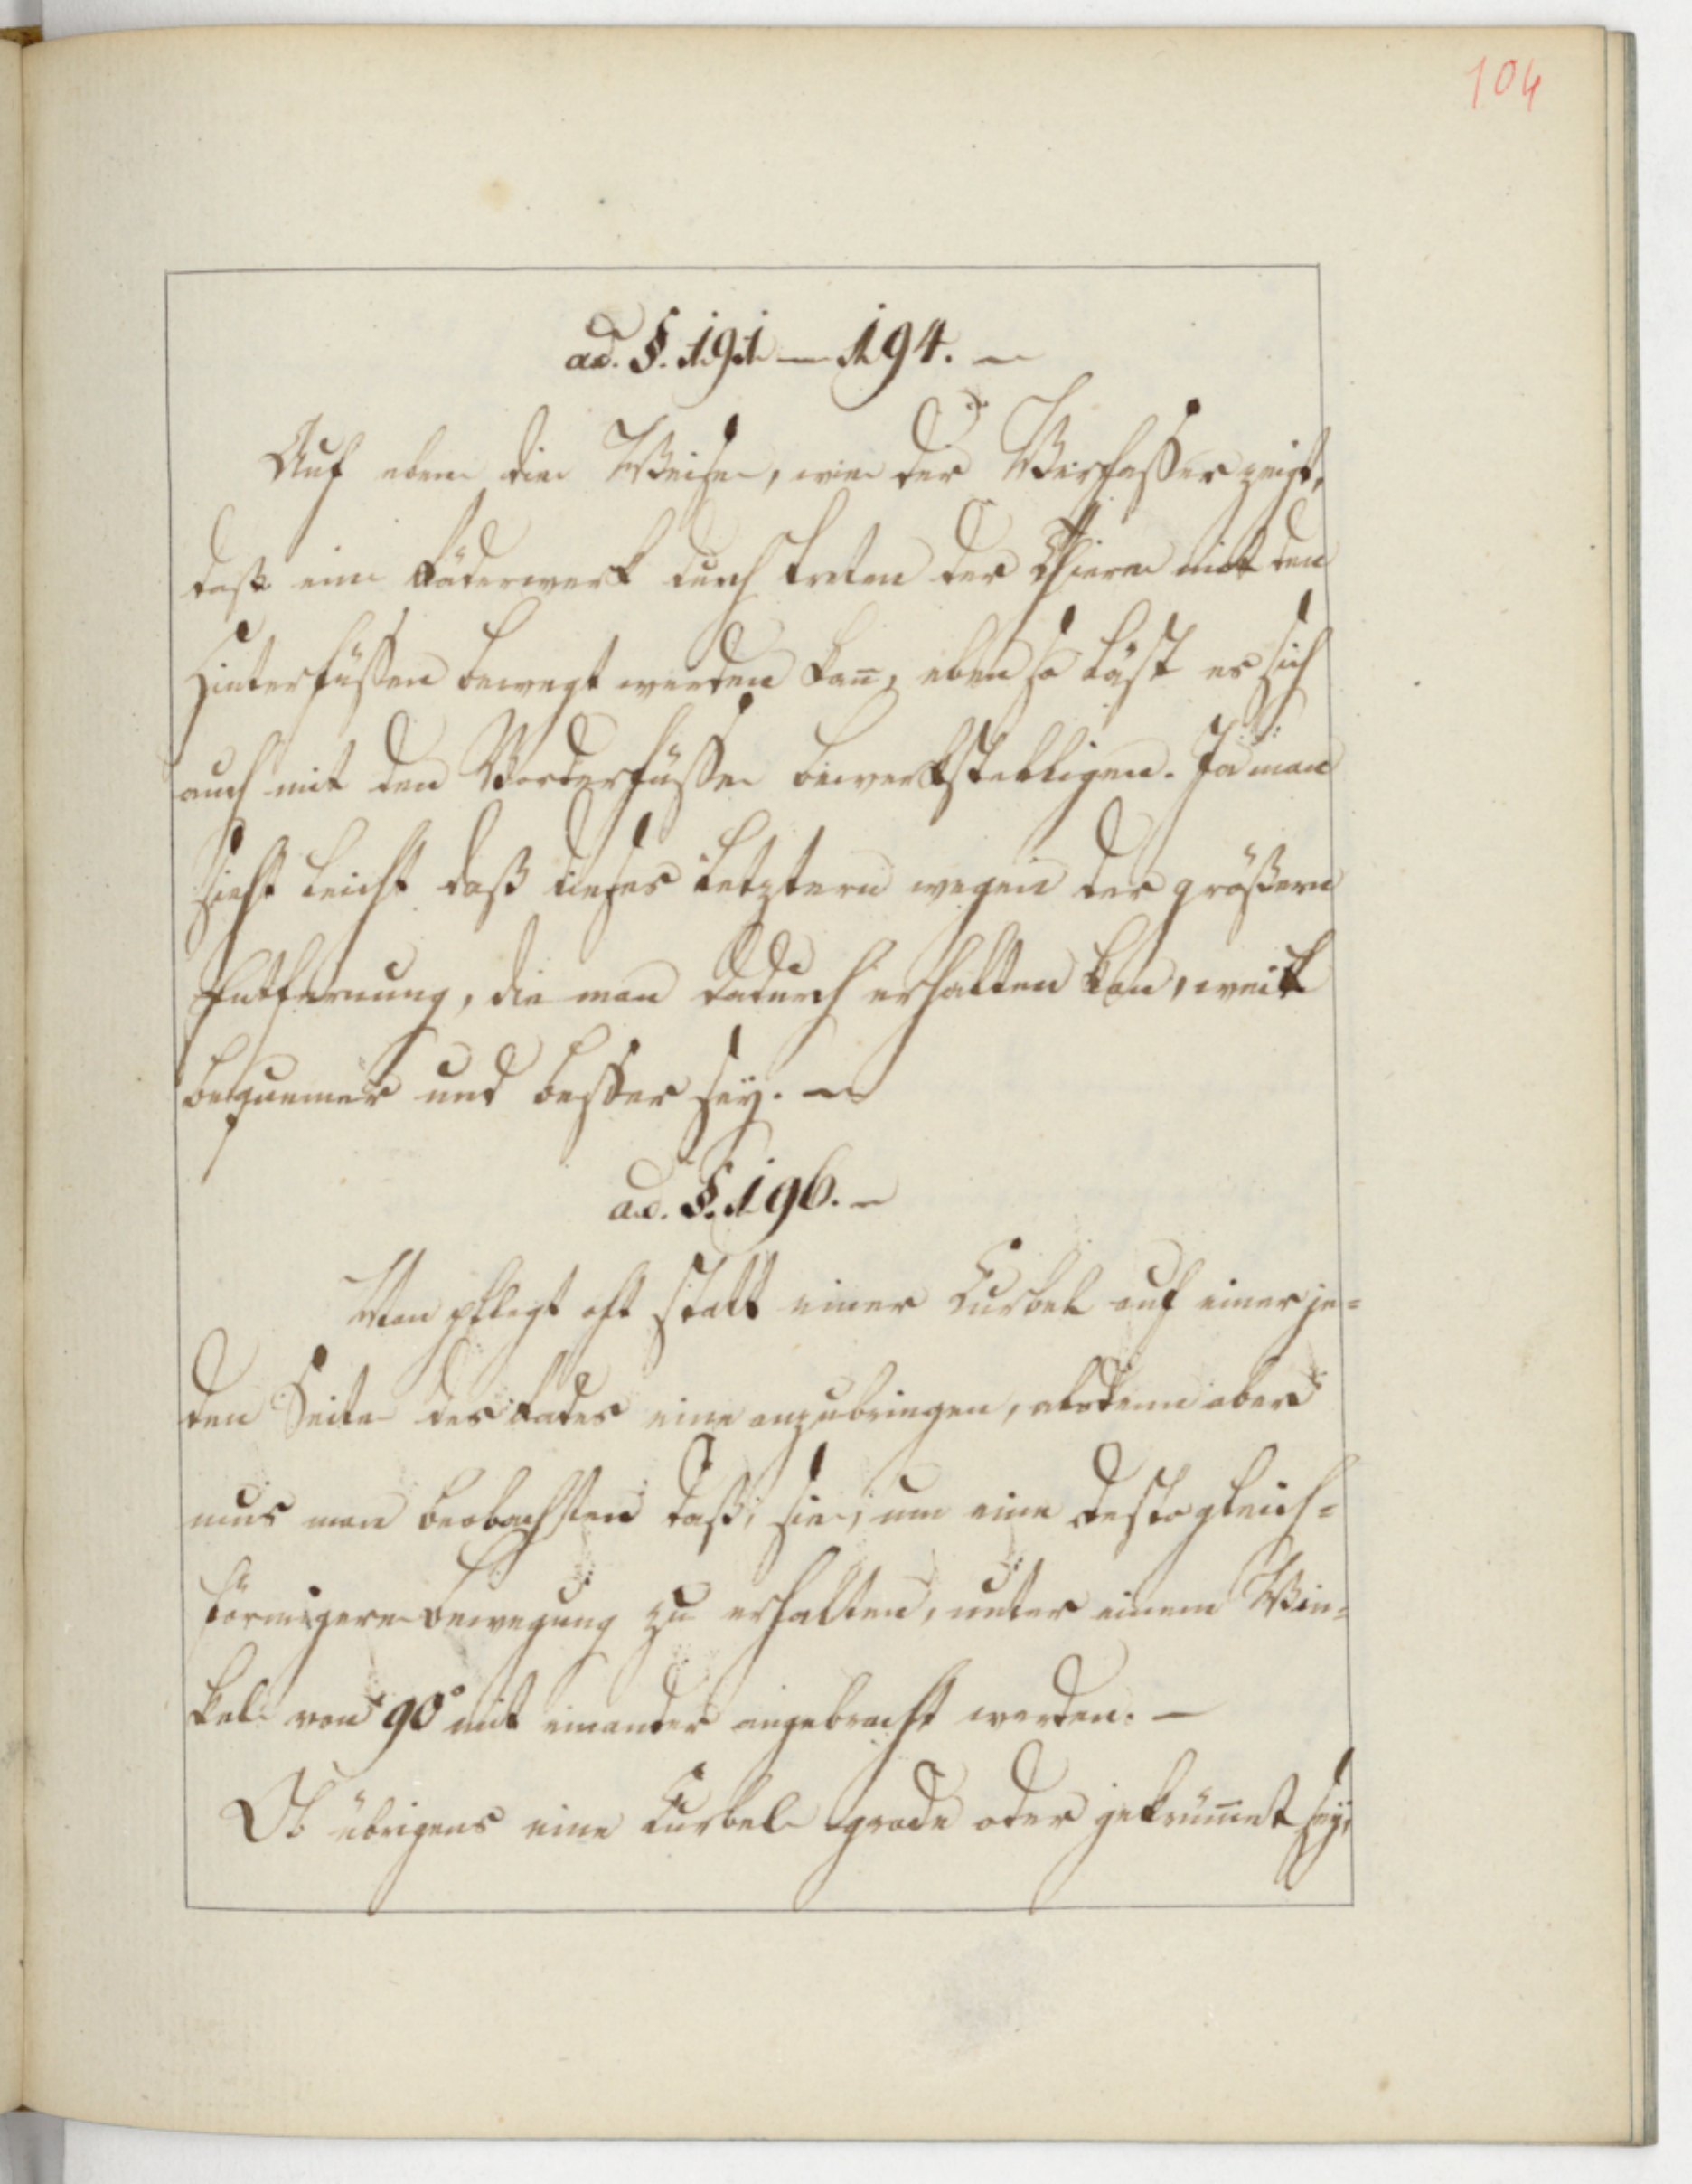 104
ad. §. 191 — 194. —
Auf eben die Weise, wie der Verfasser zeigt,
daß ein Räderwerk durch treten der Thiere mit den
Hinterfüßen bewegt werden kan̅, eben so läst es sich
auch mit den Vorderfüßen bewerkstelligen. Ja man
sieht leicht daß dieses letztere wegen der größern
Entfernung, die man dadurch erhalten kan, weit
bequemer und besser seÿ. —
ad. §. 196. —
Man pflegt oft statt einer Kurbel auf einer je=
den Seite des Rades eine anzubringen, alsdenn aber
mus man beobachten daß, sie, um eine desto gleich=
förmigere Bewegung zu erhalten, unter einem Win=
kel von 90° mit einander angebracht werden. —
Ob übrigens eine Kurbel grade oder gekrüm̅et seÿ,